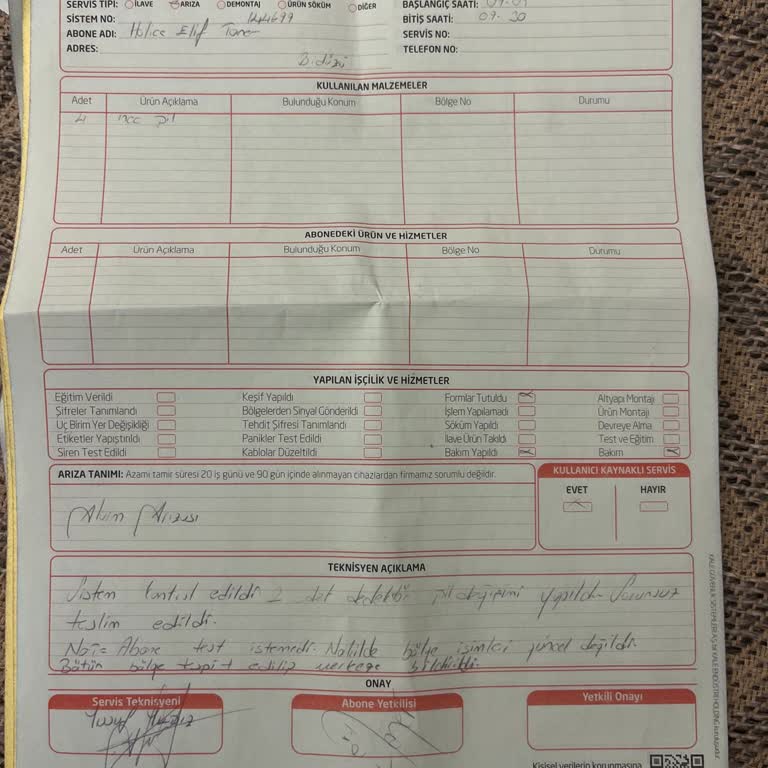 SERVİS TİPİ: İLAVE ARIZA DEMONTAJ ÜRÜN SÖKÜM DİĞER BAŞLANGIÇ SAATİ:
SİSTEM NO: 144699 BİTİŞ SAATİ: 09.30
ABONE ADI: Elif SERVİS NO:
ADRES: TELEFON NO:
KULLANILAN MALZEMELER
Adet Ürün Açıklama Bulunduğu Konum Bölge No Durumu
4 pil
ABONEDEKİ ÜRÜN VE HİZMETLER
Adet Ürün Açıklama Bulunduğu Konum Bölge No Durumu
YAPILAN İŞÇİLİK VE HİZMETLER
Eğitim Verildi Keşif Yapıldı Formlar Tutuldu Altyapı Montajı
Şifreler Tanımlandı Bölgelerden Sinyal Gönderildi İşlem Yapılamadı Ürün Montajı
Uç Birim Yer Değişikliği Tehdit Şifresi Tanımlandı Söküm Yapıldı Devreye Alma
Etiketler Yapıştırıldı Panikler Test Edildi İlave Ürün Takıldı Test ve Eğitim
Siren Test Edildi Kablolar Düzeltildi Bakım Yapıldı Bakım
ARIZA TANIMI: Azami tamir süresi 20 iş günü ve 90 gün içinde alınmayan cihazlardan firmamız sorumlu değildir.
KULLANICI KAYNAKLI SERVİS
EVET HAYIR
Arızası
TEKNİSYEN AÇIKLAMA
Sistem kontrol edildi 2 det dedektör pil değişimi yapıldı. Sorunsuz
teslim edildi.
Not= Abone test istemedi. bölge isimleri güncel değildir.
Bütün bölge tespit edilip merkeze bildirildi.
ONAY
Servis Teknisyeni Abone Yetkilisi Yetkili Onayı
Yusuf
Kişisel verilerin korunmasına